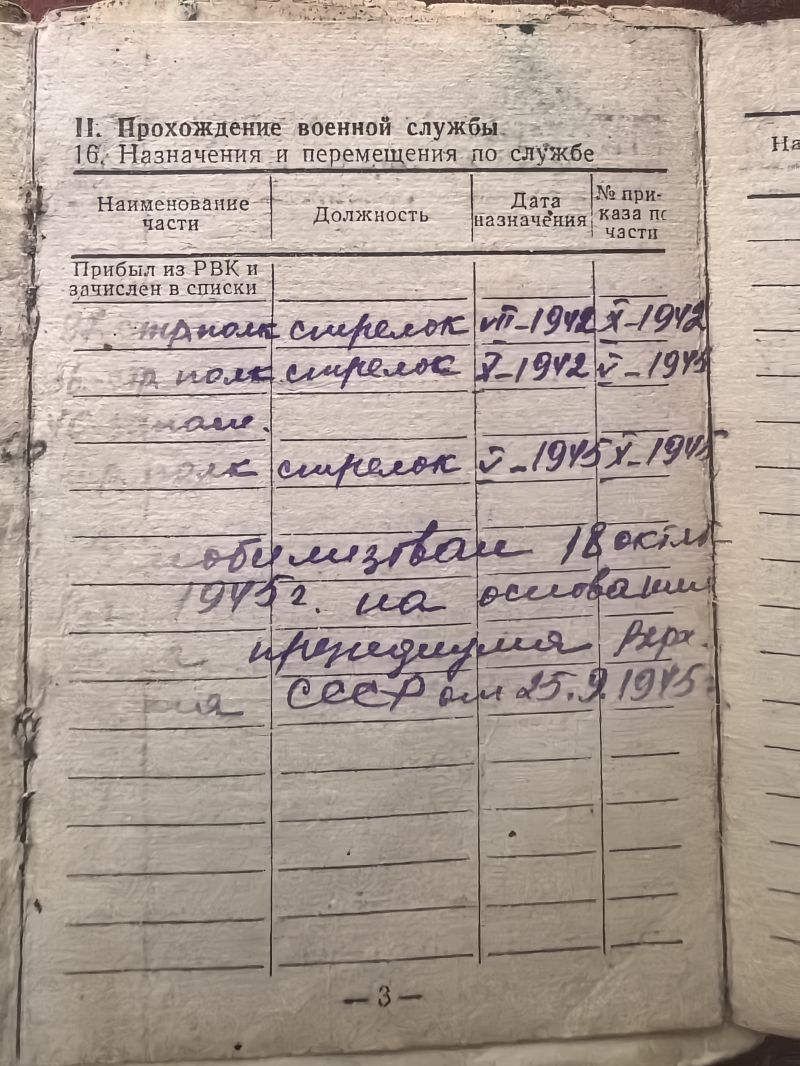 II. Прохождение военной службы
16. Назначения и перемещения по службе
Наименование части Должность Дата назначения № приказа по части
Прибыл из РВК и
зачислен в списки
полк стрелок VII-1942 X-1942
полк стрелок X-1942 V-1945
полк стрелок V-1945 X-1945
18
1945 г. на
президиума Верх.
СССР от 25.9.1945
— 3 —
На